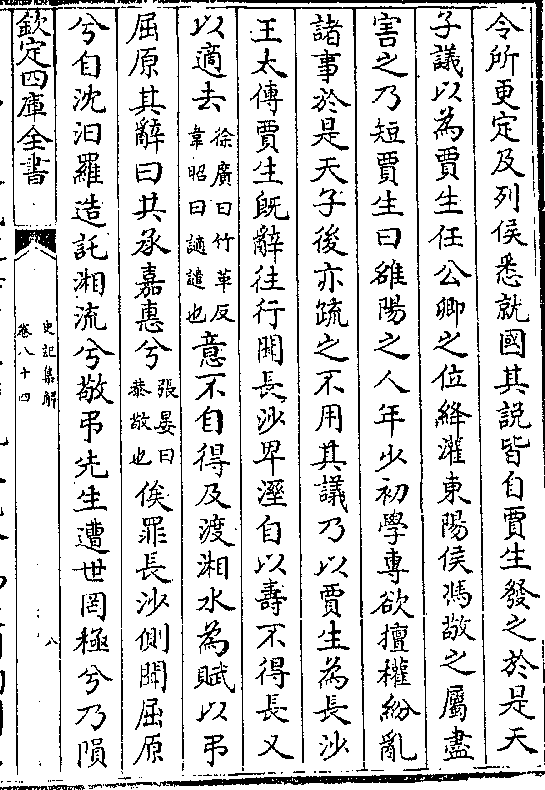 令所更定及列侯悉就國其說皆自賈生發之於是天
子議以為賈生任公卿之位絳灌東陽侯馮敬之屬盡
害之乃短賈生曰雒陽之人年少初學專欲擅權紛亂
諸事於是天子後亦疏之不用其議乃以賈生為長沙
王太傅賈生既辭往行聞長沙卑溼自以壽不得長又
以適去徐廣曰竹革反韋昭曰謫譴也意不自得及渡湘水為賦以弔
屈原其辭曰共承嘉惠兮張晏曰恭敬也俟罪長沙側聞屈原
兮自沈汨羅造託湘流兮敬弔先生遭世罔極兮乃隕
欽定四庫全書
史記集解
卷八十四
八